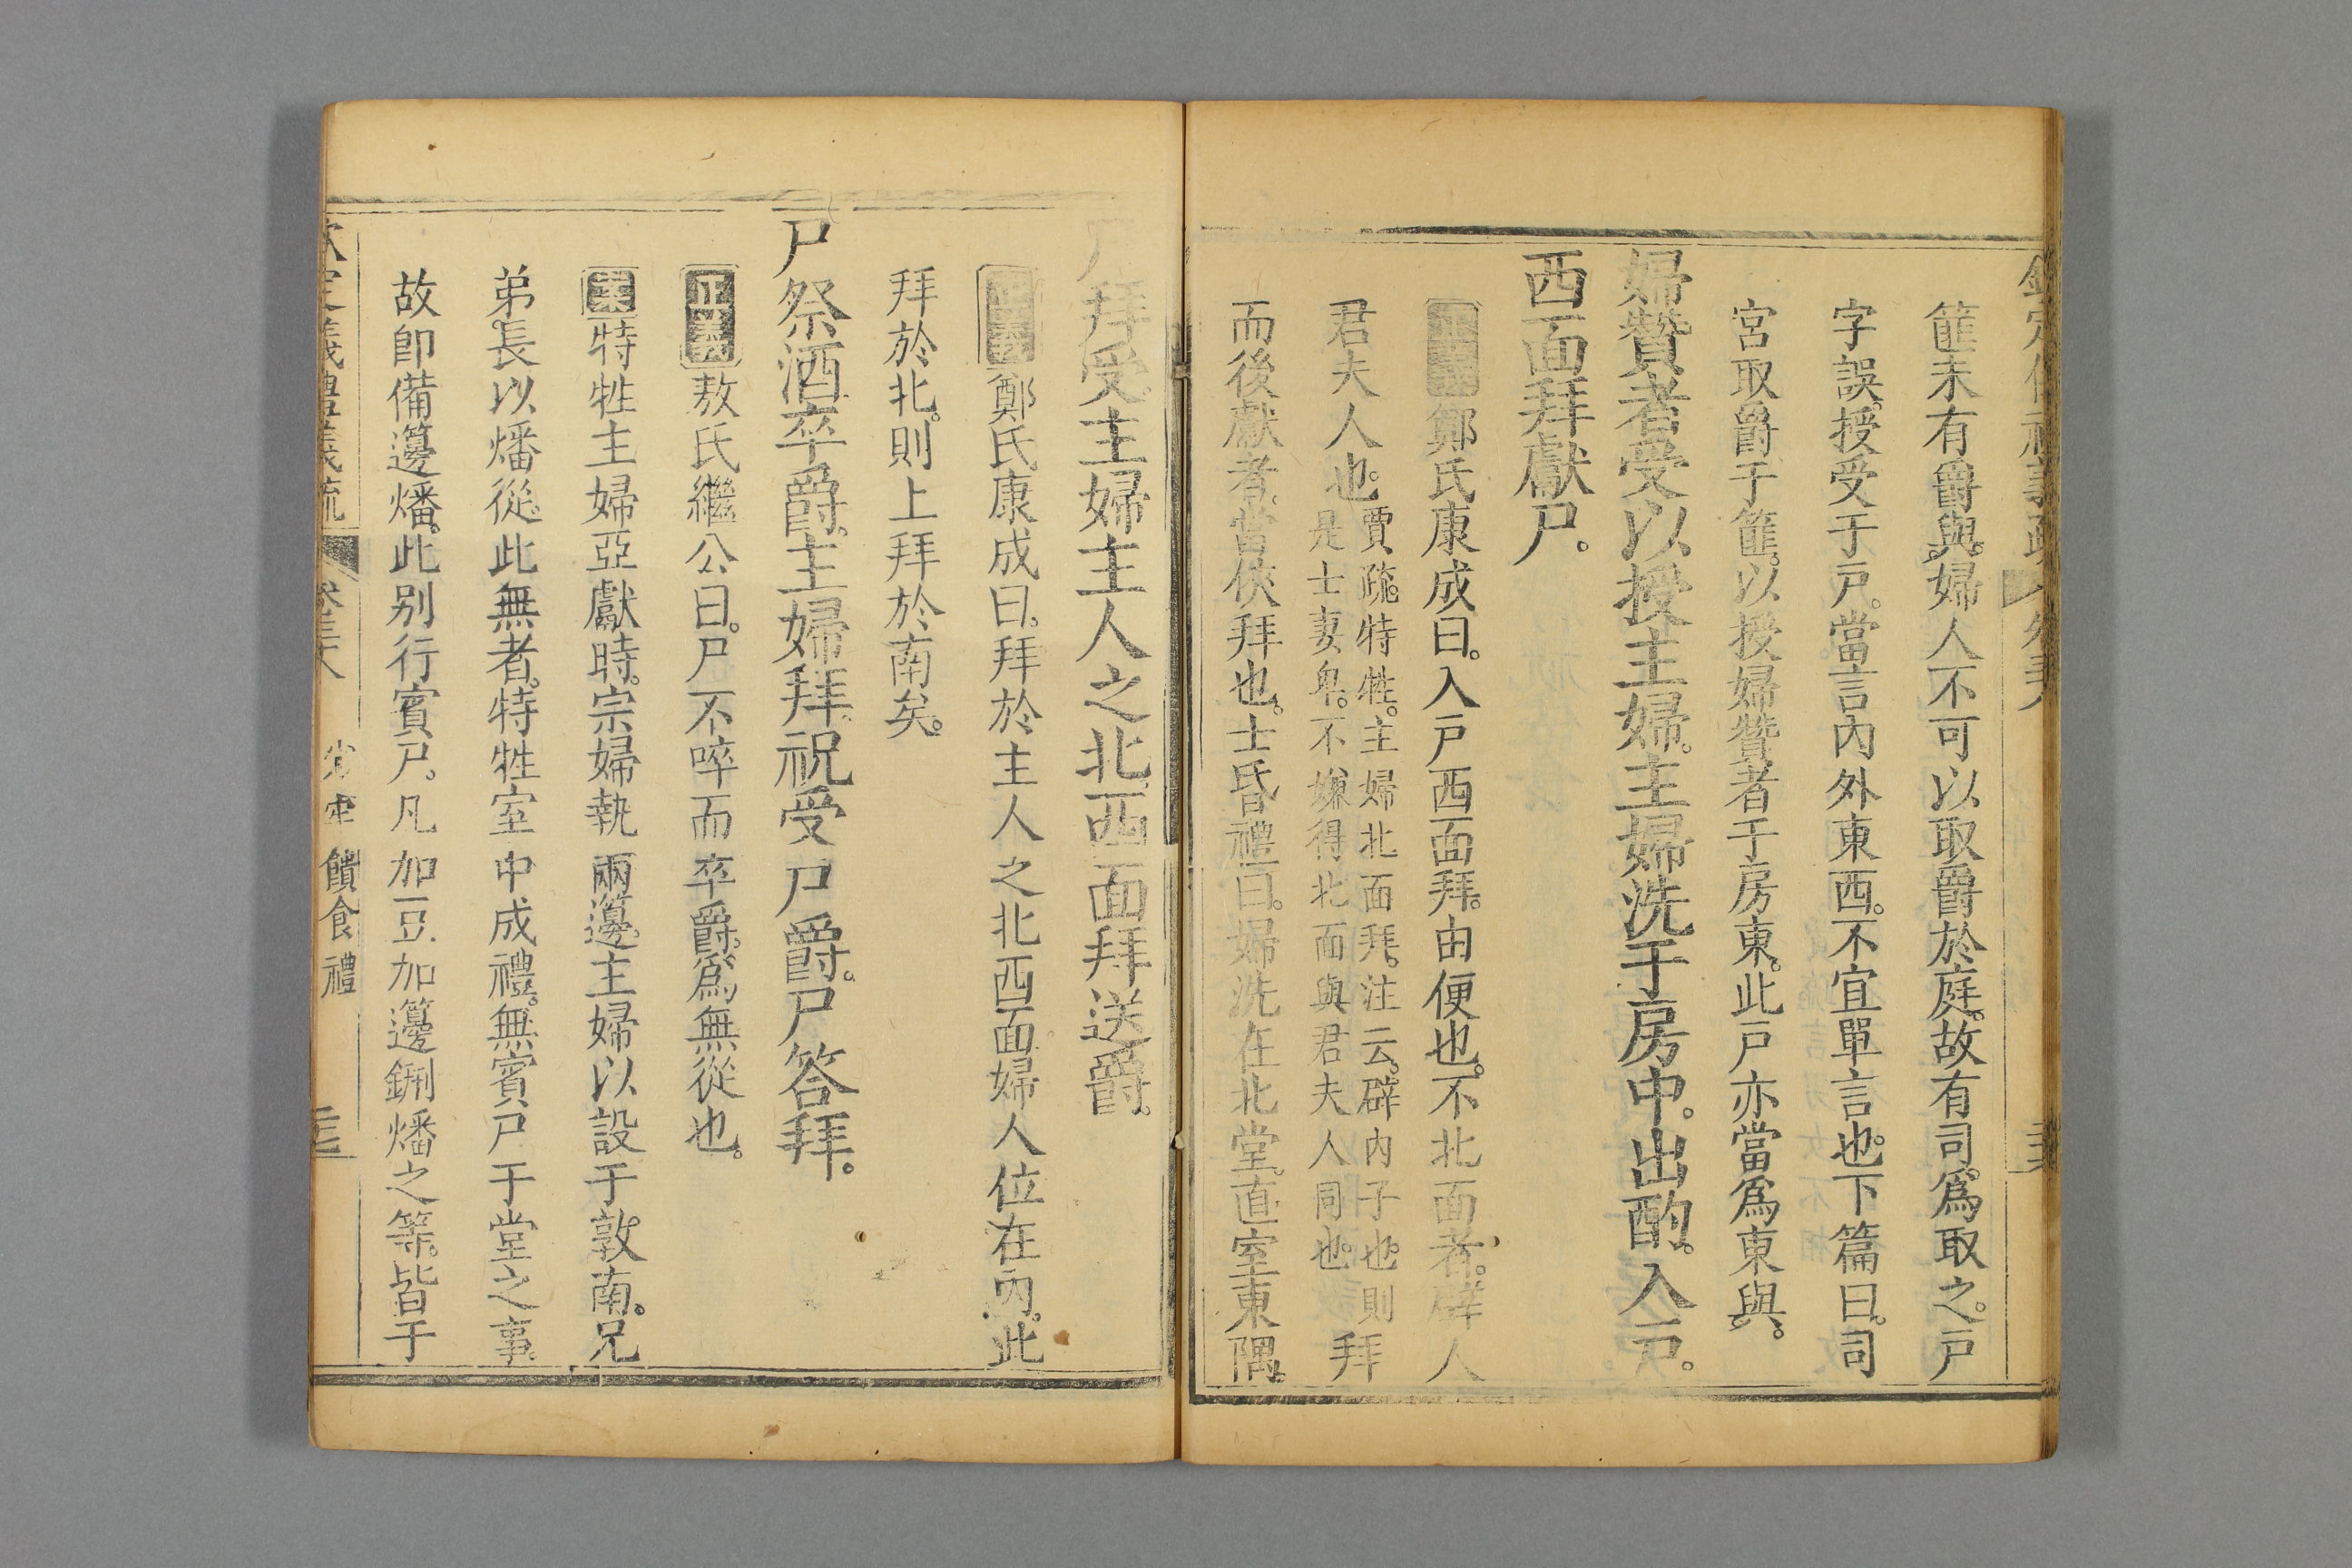 篚未有爵與。婦人不可以取爵於庭。故有司爲取之。戸
字誤。授受于戸。當言內外東西。不宜單言也。下篇曰。司
宮取爵于篚。以授婦贊者于房東。此戸亦當爲東與。
婦贊者受以授主婦。主婦洗于房中。出酌。入戸。
西面拜獻尸。
正義鄭氏康成曰。入戸西面拜。由便也。不北面者。辟人
君夫人也。賈疏。特牲。主婦北面拜。注云。辟內子也。則是士妻卑。不嫌得北面與君夫人同也。拜
而後獻者。當俠拜也。士昏禮曰。婦洗在北堂。直室東隅。
尸拜受。主婦主人之北。西面拜送爵。
正義鄭氏康成曰。拜於主人之北西面。婦人位在內。此
拜於北。則上拜於南矣。
尸祭酒卒爵。主婦拜。祝受尸爵。尸答拜。
正義敖氏繼公曰。尸不啐而卒爵。爲無從也。
案特牲主婦亞獻時。宗婦執兩籩。主婦以設于敦南。兄
弟長以燔從。此無者。特牲室中成禮。無賓尸于堂之事。
故卽備籩燔。此別行賓尸。凡加豆加籩鉶燔之等。皆于
欽定義禮義疏 卷三十八 少牢饋食禮